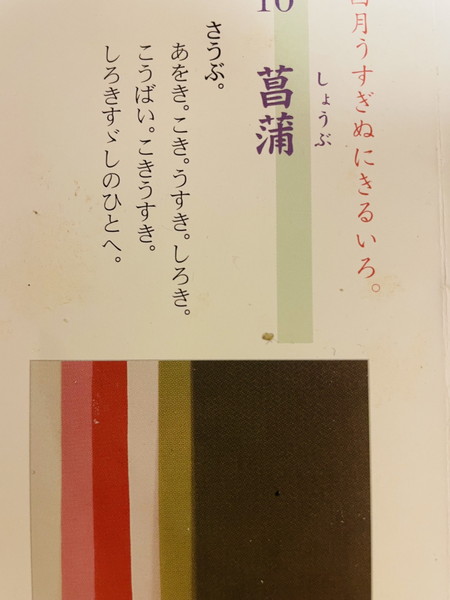 月うすぎぬにきるいろ。
10
しょうぶ
菖蒲
さうぶ。
あをき。こき。うすき。しろき。
こうばい。こきうすき。
しろきすゞしのひとへ。